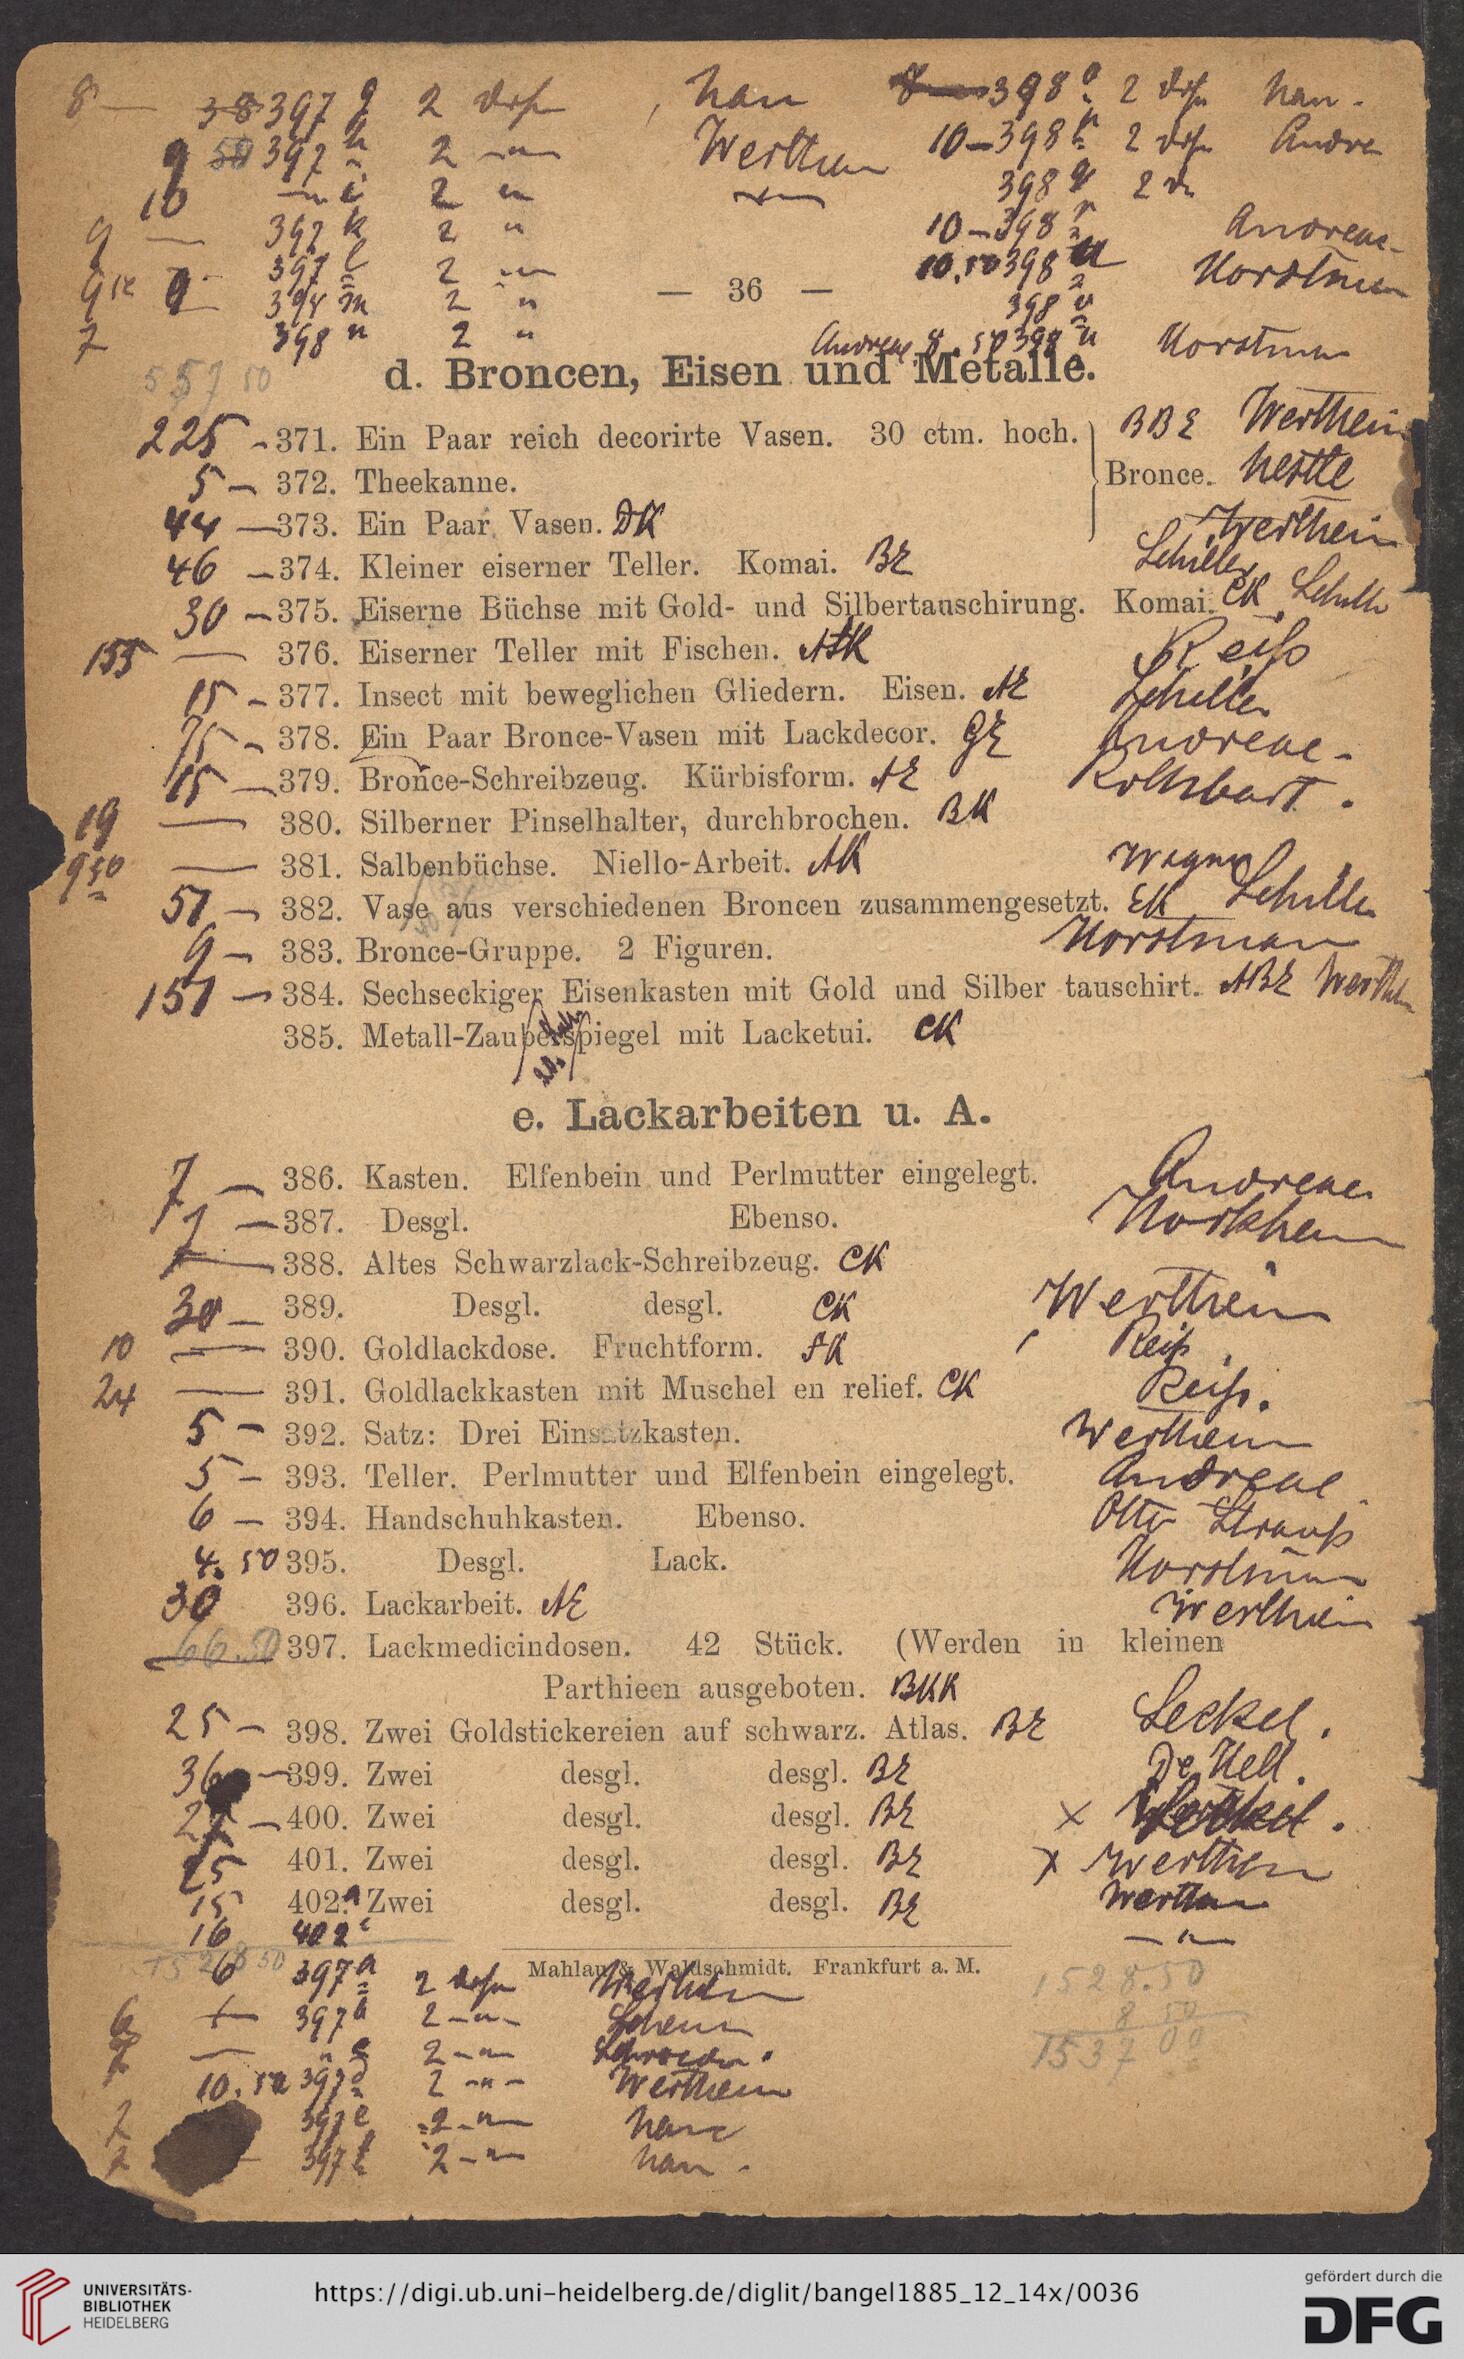 8 — 38 397 g 2 han 398 2 han.
9 50 397 h 2 — " — Werthein 10 — 398 2 Andre
10 — " i 2 " — " — 398 q 2
9 — 397 k 2 " 10 — 398 r Andreae
397 l 2 " 10.50 398 Horstman
— 36 —
394 m 2 " 398
7 398 n 2 " Andreae 8.50 398 u Horstman
557 50
d. Broncen, Eisen und Metalle.
225 — 371. Ein Paar reich decorirte Vasen. 30 ctm. hoch. BBE Werthein
5 — 372. Theekanne. Bronce. hertle
44 — 373. Ein Paar Vasen. DK Werthein
46 — 374. Kleiner eiserner Teller. Komai. BE Schiller
30 — 375. Eiserne Büchse mit Gold- und Silbertauschirung. Komai. CK Schiller
155 — 376. Eiserner Teller mit Fischen. AFK Reiß
15 — 377. Insect mit beweglichen Gliedern. Eisen. AE Schiller
75 — 378. Ein Paar Bronce-Vasen mit Lackdecor. GE Andreae —
15 — 379. Bronce-Schreibzeug. Kürbisform. AE Rothbart.
19 — 380. Silberner Pinselhalter, durchbrochen. BK
9 50 — 381. Salbenbüchse. Niello-Arbeit. AK Wagner
51 — 382. Vase aus verschiedenen Broncen zusammengesetzt. EK Schiller
9 — 383. Bronce-Gruppe. 2 Figuren. Horstman
151 — 384. Sechseckiger Eisenkasten mit Gold und Silber tauschirt. ABE Werthein
385. Metall-Zauberspiegel mit Lacketui. CK
e. Lackarbeiten u. A.
7 — 386. Kasten. Elfenbein und Perlmutter eingelegt. Andreae
7 — 387. Desgl. Ebenso.
7 — 388. Altes Schwarzlack-Schreibzeug. CK
30 — 389. Desgl. desgl. CK Werthein
10 — 390. Goldlackdose. Fruchtform. FK Reiß
24 — 391. Goldlackkasten mit Muschel en relief. CK Reiß.
5 — 392. Satz: Drei Einsatzkasten. Werthein
5 — 393. Teller. Perlmutter und Elfenbein eingelegt. Andreae
6 — 394. Handschuhkasten. Ebenso. Otto Strauß
4.50 395. Desgl. Lack. Horstman
30 396. Lackarbeit. AE Werthein
66.50 397. Lackmedicindosen. 42 Stück. (Werden in kleinen
Parthieen ausgeboten. BKK
25 — 398. Zwei Goldstickereien auf schwarz. Atlas. BE Seckel.
36 — 399. Zwei desgl. desgl. BE De Hell.
400. Zwei desgl. desgl. BE x
25 401. Zwei desgl. desgl. BE x Werthein
15 402. a Zwei desgl. desgl. BE Werthein
16 402 c — " —
Mahlau & Waldschmidt. Frankfurt a. M.
6 397 a 2 Werthein 1528.50
6 397 b 2 — " — 8 50
7 — " c 2 — " 1537 00
10.50 397 d 2 — " — Werthein
7 397 e 2 — " — han
7 397 f 2 — " — han —
UNIVERSITÄTS-
BIBLIOTHEK
HEIDELBERG
https://digi.ub.uni-heidelberg.de/diglit/bangel1885_12_14x/0036
gefördert durch die
DFG